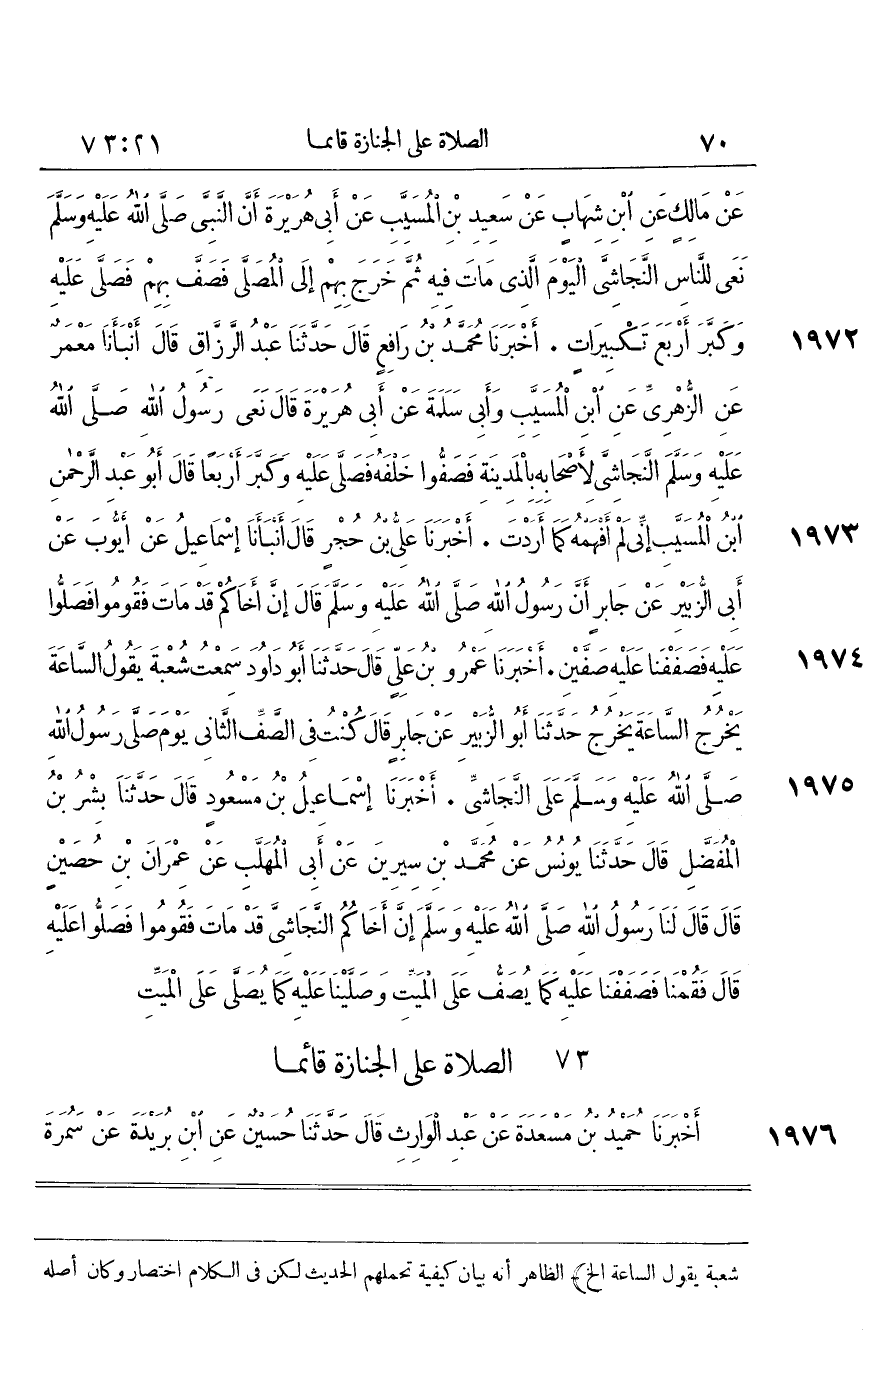 ٧٠ الصلاة على الجنازة قائما ٢١:٧٣
عَنْ مَالِكٍ عَنِ ابْنِ شِهَابٍ عَنْ سَعِيدِ بْنِ الْمُسَيَّبِ عَنْ أَبِى هُرَيْرَةَ أَنَّ النَّبِىَّ صَلَّى اللهُ عَلَيْهِ وَسَلَّمَ
نَعَى لِلنَّاسِ النَّجَاشِىَّ الْيَوْمَ الَّذِى مَاتَ فِيهِ ثُمَّ خَرَجَ بِهِمْ إِلَى الْمُصَلَّى فَصَفَّ بِهِمْ فَصَلَّى عَلَيْهِ
وَكَبَّرَ أَرْبَعَ تَكْبِيرَاتٍ . أَخْبَرَنَا مُحَمَّدُ بْنُ رَافِعٍ قَالَ حَدَّثَنَا عَبْدُ الرَّزَّاقِ قَالَ أَنْبَأَنَا مَعْمَرٌ ١٩٧٢
عَنِ الزُّهْرِىِّ عَنِ ابْنِ الْمُسَيَّبِ وَأَبِى سَلَمَةَ عَنْ أَبِى هُرَيْرَةَ قَالَ نَعَى رَسُولُ اللهِ صَلَّى اللهُ
عَلَيْهِ وَسَلَّمَ النَّجَاشِىَّ لِأَصْحَابِهِ بِالْمَدِينَةِ فَصَفُّوا خَلْفَهُ فَصَلَّى عَلَيْهِ وَكَبَّرَ أَرْبَعًا قَالَ أَبُو عَبْدِ الرَّحْمٰنِ
ابْنُ الْمُسَيَّبِ إِنِّى لَمْ أَفْهَمْهُ كَمَا أَرَدْتُ . أَخْبَرَنَا عَلِىُّ بْنُ حُجْرٍ قَالَ أَنْبَأَنَا إِسْمَاعِيلُ عَنْ أَيُّوبَ عَنْ ١٩٧٣
أَبِى الزُّبَيْرِ عَنْ جَابِرٍ أَنَّ رَسُولَ اللهِ صَلَّى اللهُ عَلَيْهِ وَسَلَّمَ قَالَ إِنَّ أَخَاكُمْ قَدْ مَاتَ فَقُومُوا فَصَلُّوا
عَلَيْهِ فَصَفَفْنَا عَلَيْهِ صَفَّيْنِ . أَخْبَرَنَا عَمْرُو بْنُ عَلِىٍّ قَالَ حَدَّثَنَا أَبُو دَاوُدَ سَمِعْتُ شُعْبَةَ يَقُولُ السَّاعَةَ ١٩٧٤
يَخْرُجُ السَّاعَةَ يَخْرُجُ حَدَّثَنَا أَبُو الزُّبَيْرِ عَنْ جَابِرٍ قَالَ كُنْتُ فِى الصَّفِّ الثَّانِى يَوْمَ صَلَّى رَسُولُ اللهِ
صَلَّى اللهُ عَلَيْهِ وَسَلَّمَ عَلَى النَّجَاشِىِّ . أَخْبَرَنَا إِسْمَاعِيلُ بْنُ مَسْعُودٍ قَالَ حَدَّثَنَا بِشْرُ بْنُ ١٩٧٥
الْمُفَضَّلِ قَالَ حَدَّثَنَا يُونُسُ عَنْ مُحَمَّدِ بْنِ سِيرِينَ عَنْ أَبِى الْمُهَلَّبِ عَنْ عِمْرَانَ بْنِ حُصَيْنٍ
قَالَ قَالَ لَنَا رَسُولُ اللهِ صَلَّى اللهُ عَلَيْهِ وَسَلَّمَ إِنَّ أَخَاكُمُ النَّجَاشِىَّ قَدْ مَاتَ فَقُومُوا فَصَلُّوا عَلَيْهِ
قَالَ فَقُمْنَا فَصَفَفْنَا عَلَيْهِ كَمَا يُصَفُّ عَلَى الْمَيِّتِ وَصَلَّيْنَا عَلَيْهِ كَمَا يُصَلَّى عَلَى الْمَيِّتِ
٧٣ الصلاة على الجنازة قائما
أَخْبَرَنَا حُمَيْدُ بْنُ مَسْعَدَةَ عَنْ عَبْدِ الْوَارِثِ قَالَ حَدَّثَنَا حُسَيْنٌ عَنِ ابْنِ بُرَيْدَةَ عَنْ سَمُرَةَ ١٩٧٦
شعبة يقول الساعة الخ﴾ الظاهر أنه بيان كيفية تحملهم الحديث لكن فى الكلام اختصار وكان أصله